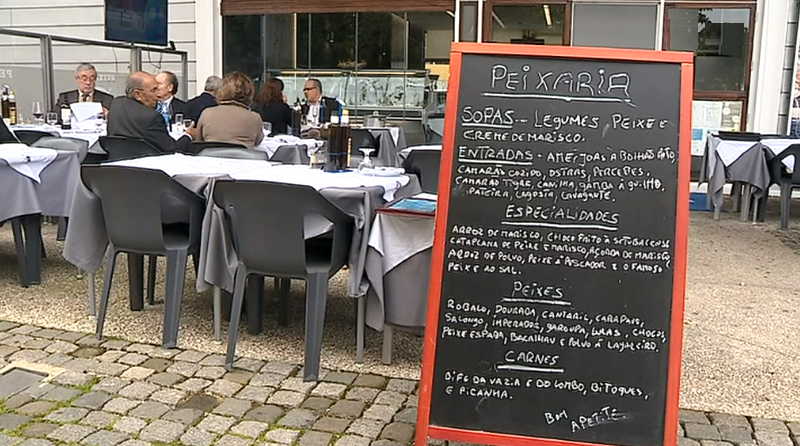 PEIXARIA
SOPAS - LEGUMES, PEIXE E
CREME DE MARISCO.
ENTRADAS - AMEIJOAS À BOLHÃO PATO,
CAMARÃO COZIDO, OSTRAS, PERCEBES,
CAMARÃO TIGRE, CANILHA, GAMBA À GUILHO,
SAPATEIRA, LAGOSTA, LAVAGANTE.
ESPECIALIDADES
ARROZ DE MARISCO, CHOCO FRITO À SETUBALENSE
CATAPLANA DE PEIXE E MARISCO, AÇORDA DE MARISCO,
ARROZ DE POLVO, PEIXE À PESCADOR E O FAMOSO
PEIXE AO SAL.
PEIXES
ROBALO, DOURADA, CANTARIL, CARAPAIS,
SALONGO, IMPERADOR, GAROUPA, LULAS, CHOCOS,
PEIXE ESPADA, BACALHAU E POLVO À LAGAREIRO.
CARNES
BIFE DA VAZIA E DO LOMBO, BITOQUES,
E PICANHA.
BOM
APETITE